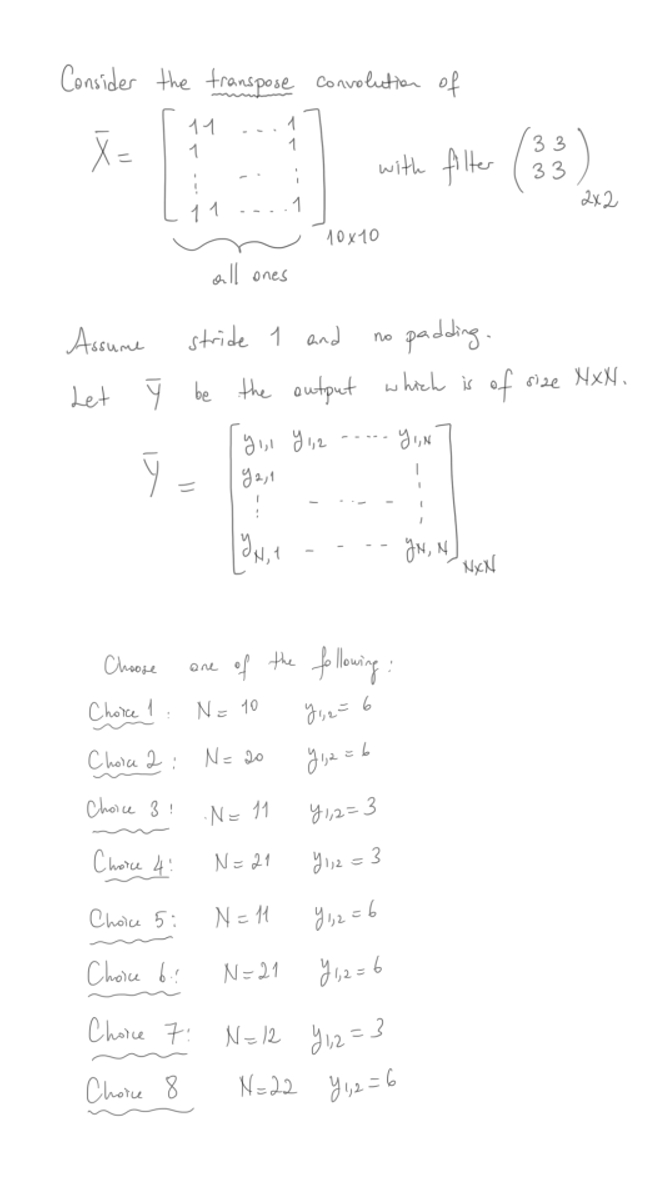 Consider the transpose convolution of
X̄ = [ 1 1 ... 1
1 1
⋮ ... ⋮
1 1 .... 1 ] 10x10 with filter ( 3 3
3 3 ) 2x2
all ones
Assume stride 1 and no padding.
Let Ȳ be the output which is of size NxN.
Ȳ = [ y1,1 y1,2 ..... y1,N
y2,1
⋮ - ... - - ⋮
yN,1 - - - - yN,N ] NxN
Choose one of the following:
Choice 1: N = 10 y1,2 = 6
Choice 2: N = 20 y1,2 = 6
Choice 3: N = 11 y1,2 = 3
Choice 4: N = 21 y1,2 = 3
Choice 5: N = 11 y1,2 = 6
Choice 6: N = 21 y1,2 = 6
Choice 7: N = 12 y1,2 = 3
Choice 8 N = 22 y1,2 = 6